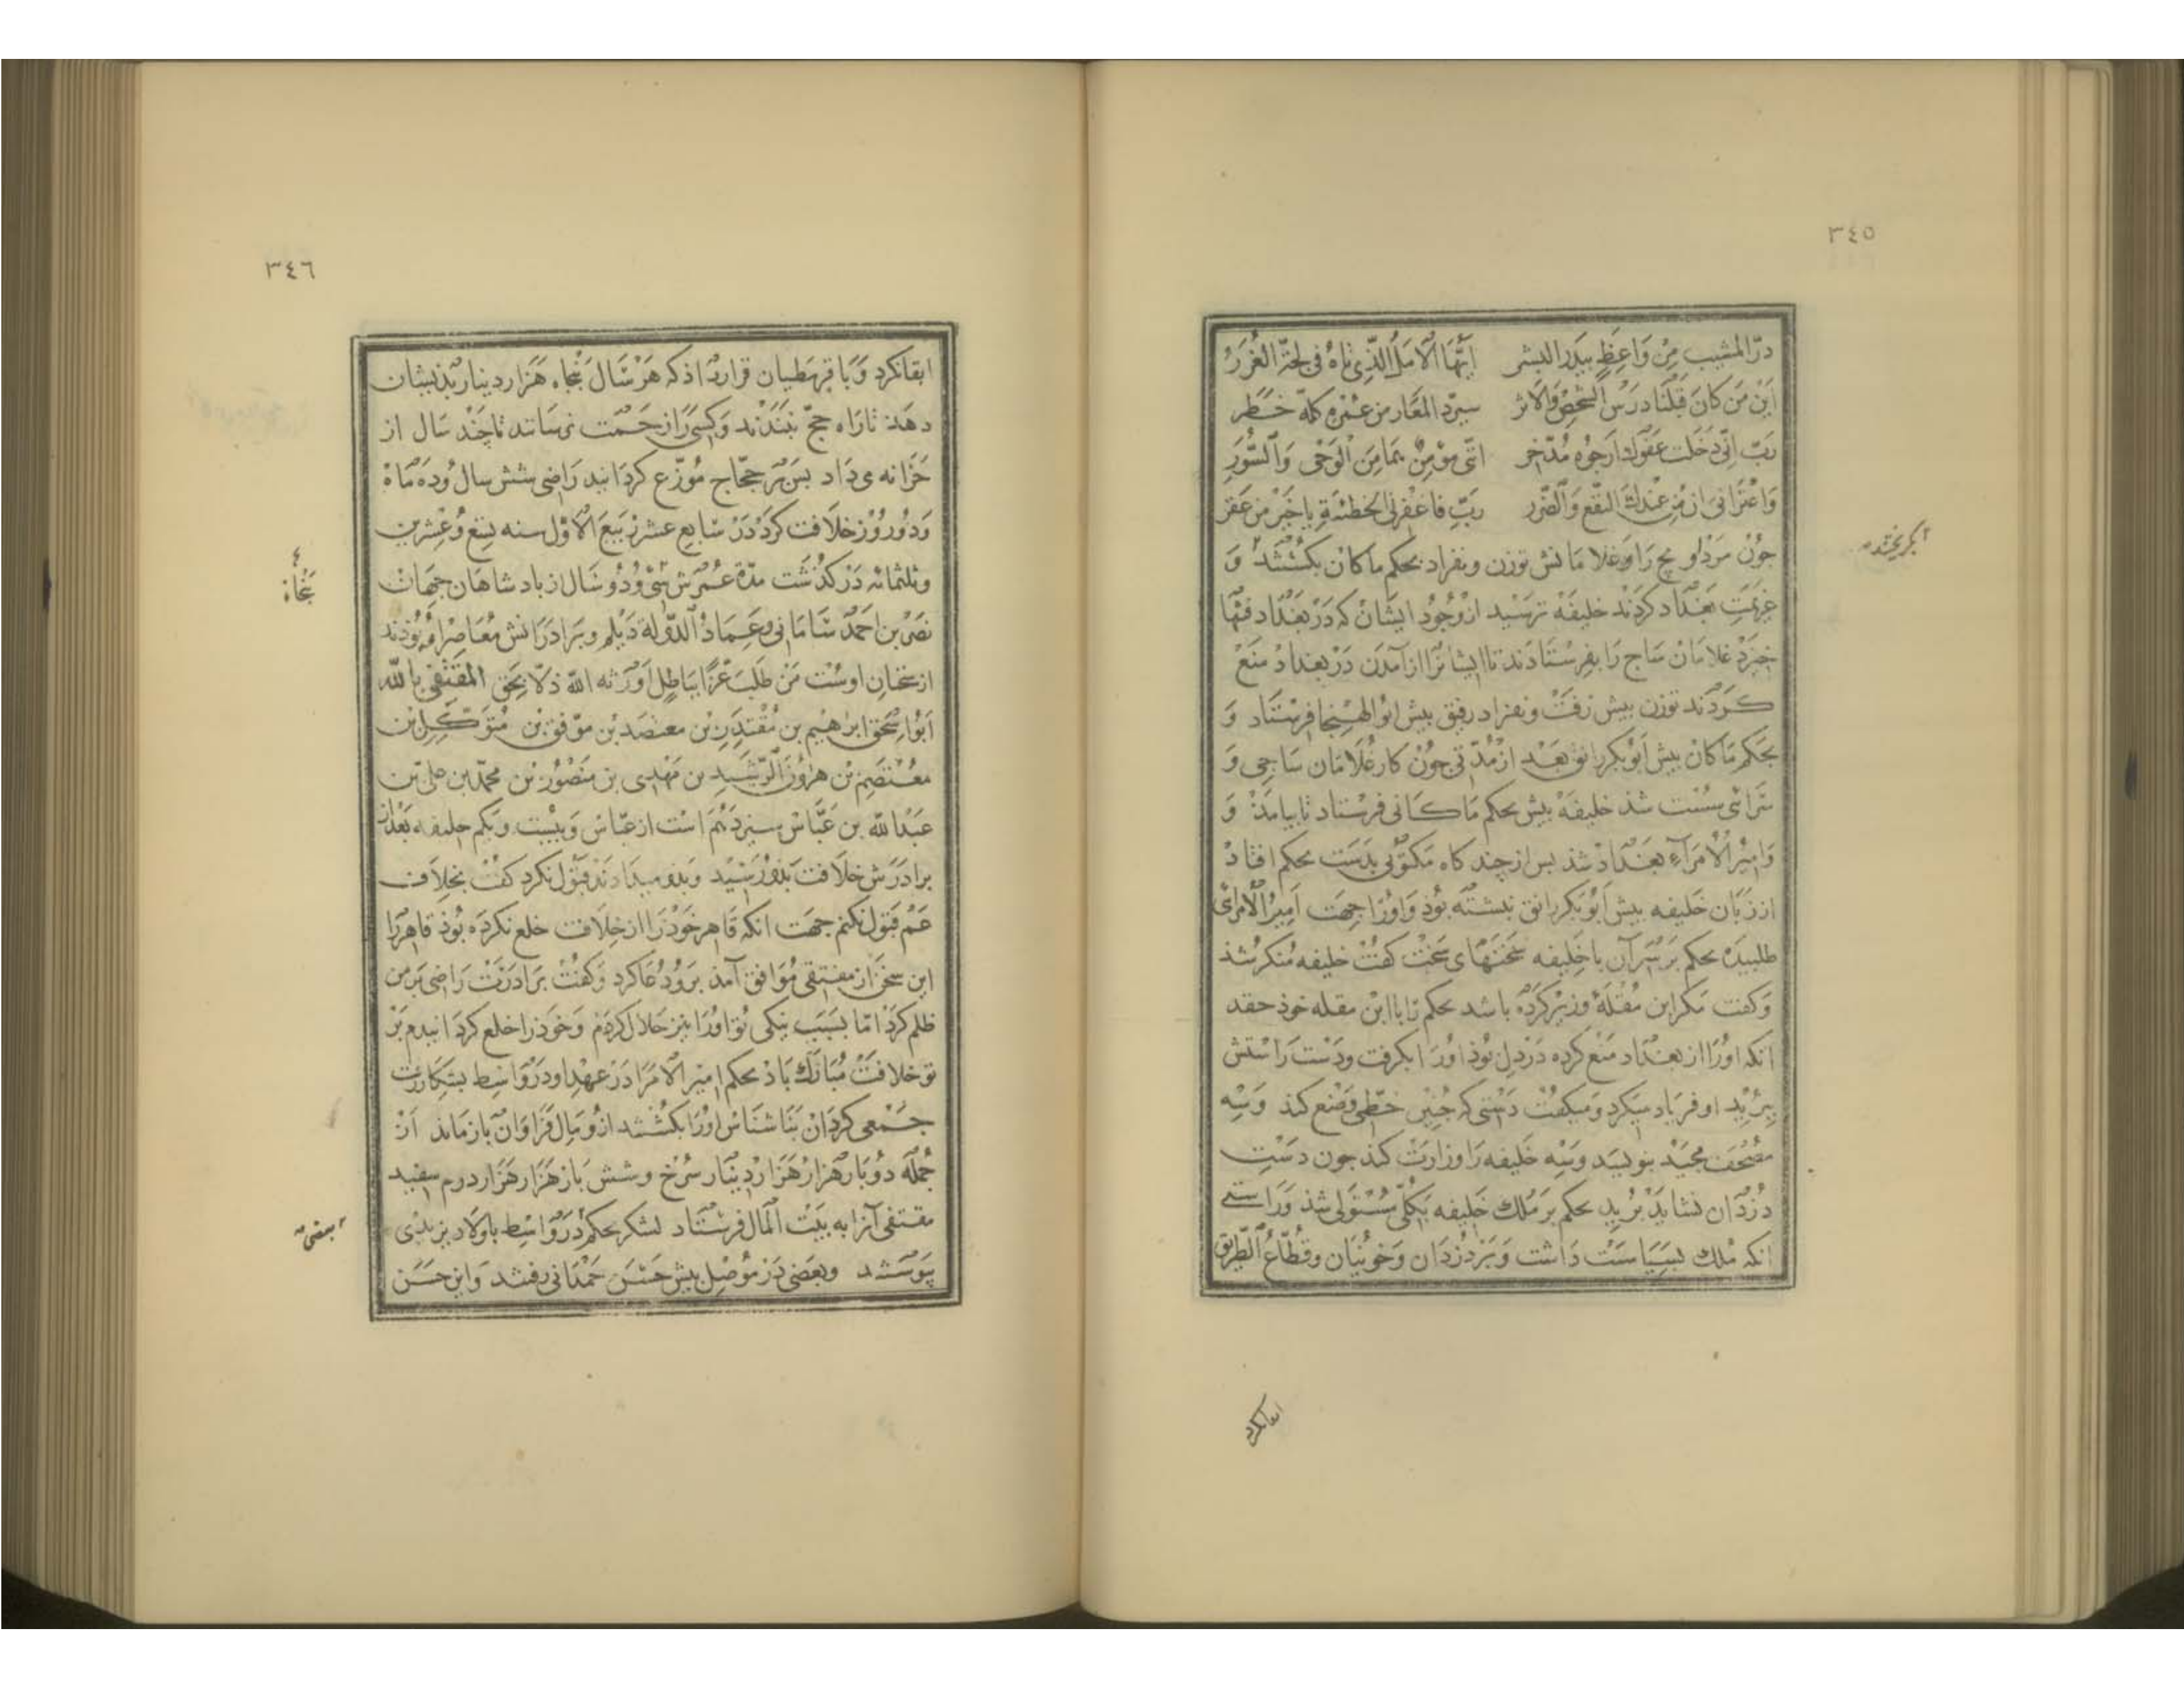 ٣٤٥
درّ المشيب مِنْ وَاعِظٍ بيدر البشر اَيُّهَا الْآمِلُ الَّذِى تاهُ فى لجة الغُرَرُ
اَيْنَ مَن كانَ قَبْلَنَا دَرَسُ الشخصُ وَالاثر سيردّ المعَار من عمْرهِ كلّه خَطر
رَبّ اِنّى دخلت عَفوك ارجُوه مُدّخر انّى مؤمِنٌ بمَا مِن الْوَحْى وَالسُّوَرِ
وَاعْتَرافى از مِن عندك النفع وَالضّرر رَبّ فاغفرلى الخطئة ياخَير من غفر
جُون مَرْداوِ يج رَا وَغلامَانش توزن ونفراد بحكم ماكان بكشتند وَ
عزيمَتِ بَغداد كردند خليفه ترسيد از وجُود ايشَان كه دَر بَغداد فتها
خيزد غلامَانْ سَاج رَا بفرستادَند تا ايشانرا از آمدن دَر بغداد منع
كردند توزن بيش رفت ونفراد رفيق بيش ابو الهيجا فرستاد وَ
بحكم مَاكان بيش اَبُوبكر رائق بَعد از مدّتى جون كار غلامَان سَاجى وَ
سَرائى سست شذ خليفه بيش بحكم مَاكانى فرستاد تا بيامذ وَ
وَاميرُ الْاُمَرآءِ بغداد شذ بس از چند كاه مكتوبى بدست بحكم افتاذ
از زبان خليفه بيش اَبُوبكر رائق نبشته بُوذ وَاورا جهت اَمِيرُ الْاُمَرائى
طلبيده بحكم بَر سَر آن با خليفه سَخنَهَاى سَخت كفت خليفه مُنكر شذ
وَكفت مكر ابن مُقله وزير كرده باشد بحكم تا با ابن مقله خوذ حقد
انكه اورَا از بغداد منع كرده دَر دِل بُوذ اورَا بكرفت ودَست رَاستش
ببُريد او فرياد ميكرد وَميكفت دَستى كه جُنين خطّى وضع كند وَسِه
مُصْحَف مجيد بنويسد وَسِه خليفه رَا وزارت كند جون دَستِ
دُزدان نشايَد بُريد بحكم بَر مُلك خَليفه بكلّى مستولى شذ وَراستى
انكه مُلك بسيَاسَت دَاشت وَبر دُزدَان وَخونيان وقُطّاعُ الطّرِيق
ابكريختند
ابقا نكرد
٣٤٦
ابقا نكرد وَبا قرمطيان قرار دَاذ كه هَر سَال بَنجاه هَزار دينار بذيشان
دهَند تا رَاه حجّ نبَندند وَكسى رَا زحمَت نرسَانند تا چَند سَال از
خَزانه مى دَاد بس بَر حجّاج مُوزّع كردَانيد رَاضى شش سال وُده مَاه
وَدو رُوز خلافت كرد دَر سَابع عشر رَبيع الاوّل سنه تسع وُعشرين
وثلثمائه دَر كذشت مدّة عُمرش سى وُدو سَال از پاد شاهَان جهَان
نصر بن احمَد سَامَانى وعِمادُ الدّوله دَيلم وبَرادرَانش مُعَاصِر او بُوذند
از سخنان اوسْت مَنْ طَلَبَ عَزًّا بباطِلٍ اَورَثه الله ذلًّا بِحَق المتّقى بالله
اَبُو اِسحق ابرهيم بن مُقتدر بن معتضد بن موفق بن مُتوكّل بن
معُتصِم بن هرُون الرّشيد بن مَهدى بن منصُور بن محمّد بن على بن
عبد الله بن عَبّاس سيزدَهم است از عبّاس وَبيست ويكم خليفه بَعد از
برادرَش خلافت بذو رَسيد وَبذو ميدادند قبُول نكرد كفت بخِلافت
عَم قبول نكنم جهت انكه قاهر خوذ رَا از خلافت خلع نكرده بُوذ قاهر رَا
اين سخن از متّقى مُوافق آمذ برو دُعا كرد وَكفت برادَرت رَاضى بَر من
ظلم كرد امّا بسَبَب نيكى تو اورَا نيز حَلال كردم وَخوذ را خلع كردَانيدم بَر
تو خلافت مُبَارَك بَاذ بحكم امير الاُمَرا دَر عهد او دَر وَاسط بشكار رفت
جمعى كردَان بَناشناس اورَا بكشتند ازو مَال فَرَاوَان باز مَاند از
جُمله دُو بار هزار هَزار دينَار سُرخ وشش بَار هَزار هَزار درم سفيد
متّقى آنرا به بَيْت المَال فرستاد لشكر بحكم دَر وَاسط باولاد بريدى
پيوستند وبعضى دَر مُوصِل بيش حَسن حَمدَانى رفتند وَابن حسَن
٤
بنجاه
ابعضى